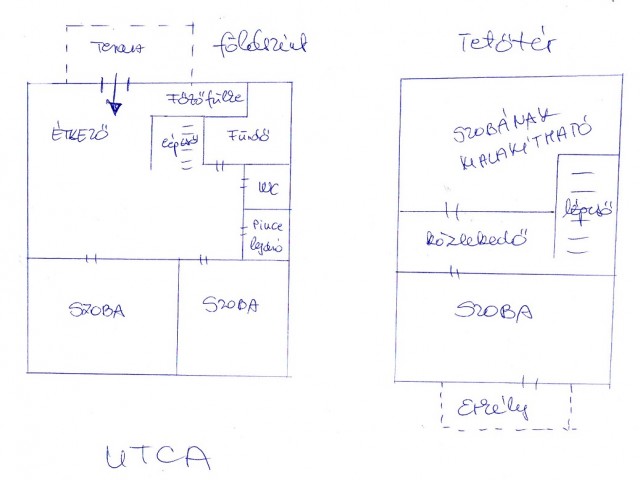 Terasz
földszint
Főzőfülke
ÉTKEZŐ
lépcső
Fürdő
WC
Pince
lejáró
SZOBA
SZOBA
UTCA
Tetőtér
SZOBÁNAK
KIALAKÍTHATÓ
lépcső
közlekedő
SZOBA
Erkély